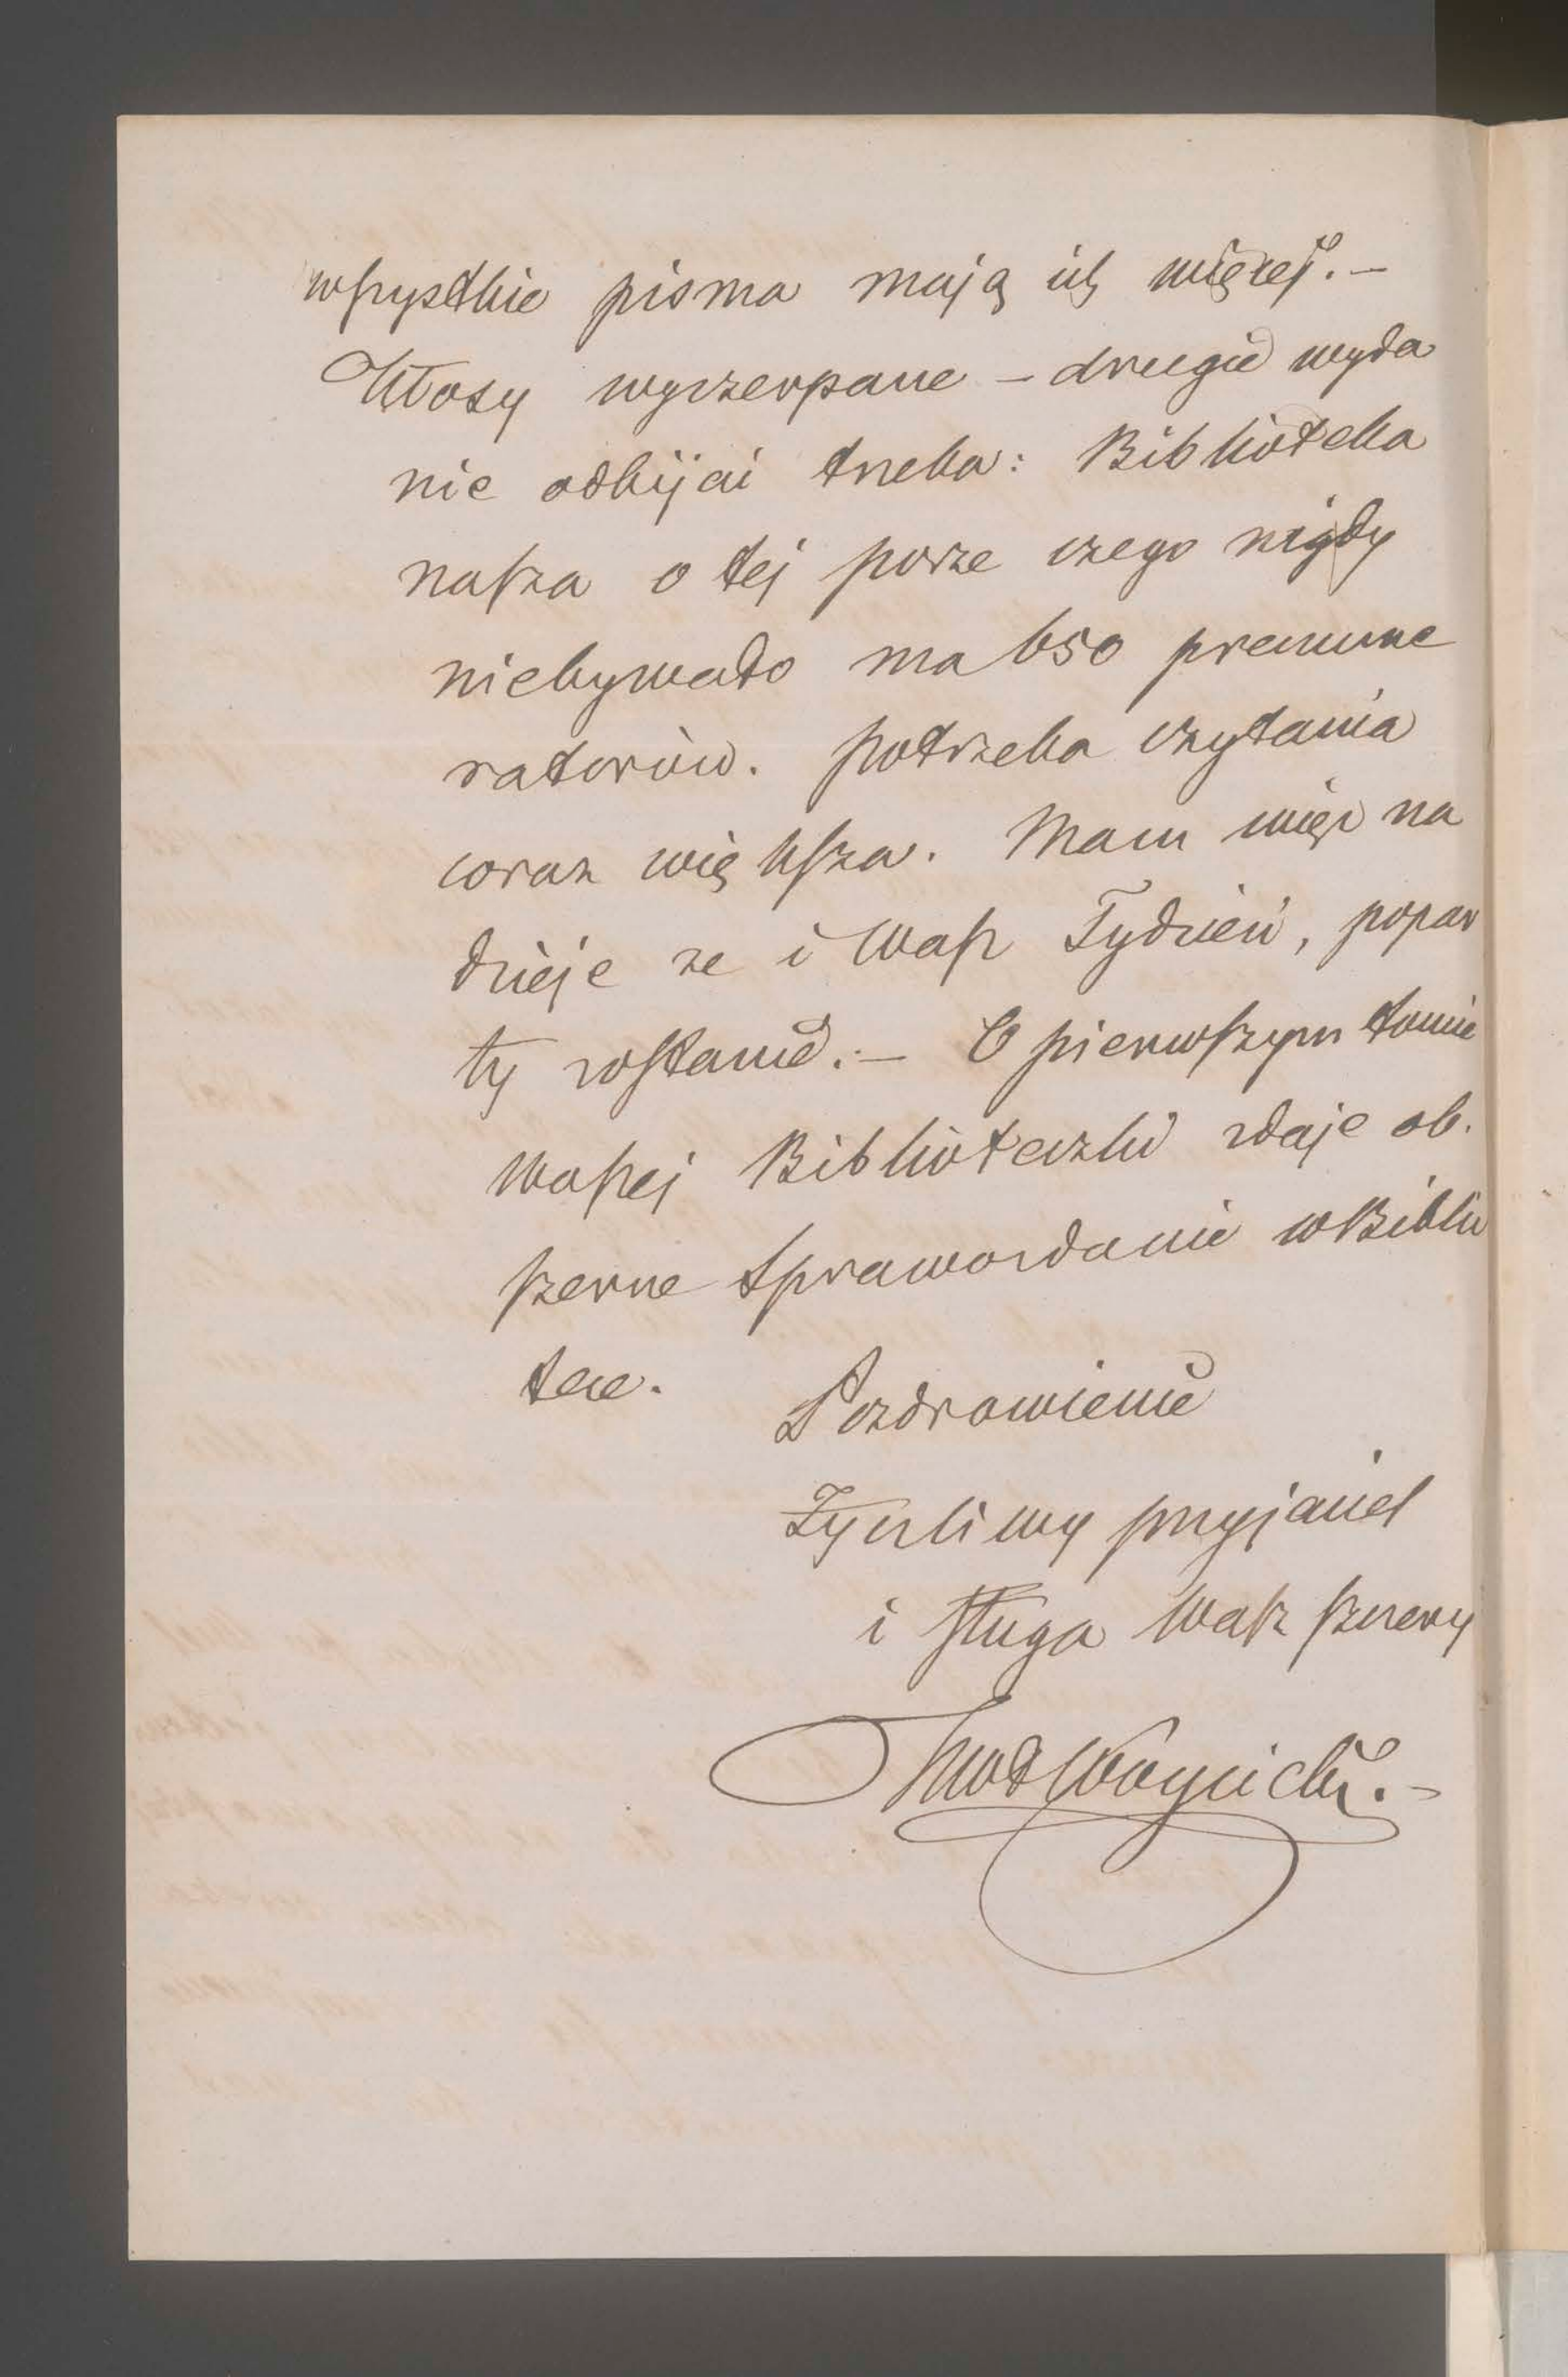 wszystkie pisma mają ich więcej. –
Kłosy wyczerpane – drugie wyda
nie odbijać trzeba: Biblioteka
nasza o tej porze czego nigdy
niebywało ma 650 prenume
ratorów. potrzeba czytania
coraz większa. Mam więc na
dzieję ze i Wasz Tydzień, popar
ty zostanie. – O pierwszym tomie
waszej Biblioteczki zdaje ob.
szerne Sprawozdanie w Biblio
tece.
Pozdrowienie
Życzliwy przyjaciel
i sługa Wasz szczery
KWł Wóycicki. –